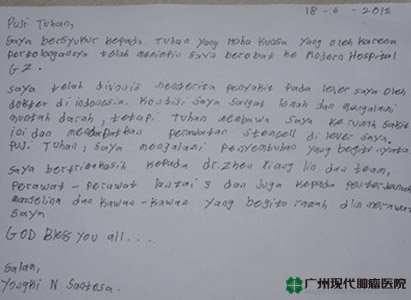 18 - 6 - 2012
Puji Tuhan,
Saya bersyukur kepada Tuhan yang Maha Kuasa yang oleh karena
pertolongannya telah memimpin saya berobat ke Modern Hospital
GZ.
Saya telah divonis menderita penyakit pada lever saya oleh
dokter di indonesia. Kondisi saya sangat lemah dan mengalami
muntah darah, tetapi Tuhan membawa saya ke rumah sakit
ini dan mendapatkan perawatan stemcell di lever saya.
Puji Tuhan, saya mengalami penyembuhan yang begitu nyata
Saya berterimakasih kepada dr. Zhen Xiang lin dan team,
perawat - perawat lantai 9 dan juga kepada penterjemah
marselina dan kawan - kawan yang begitu ramah dlm merawat
saya
GOD Bless you all . . .
Salam,
Yongki N Santosa.
广州现代肿瘤医院